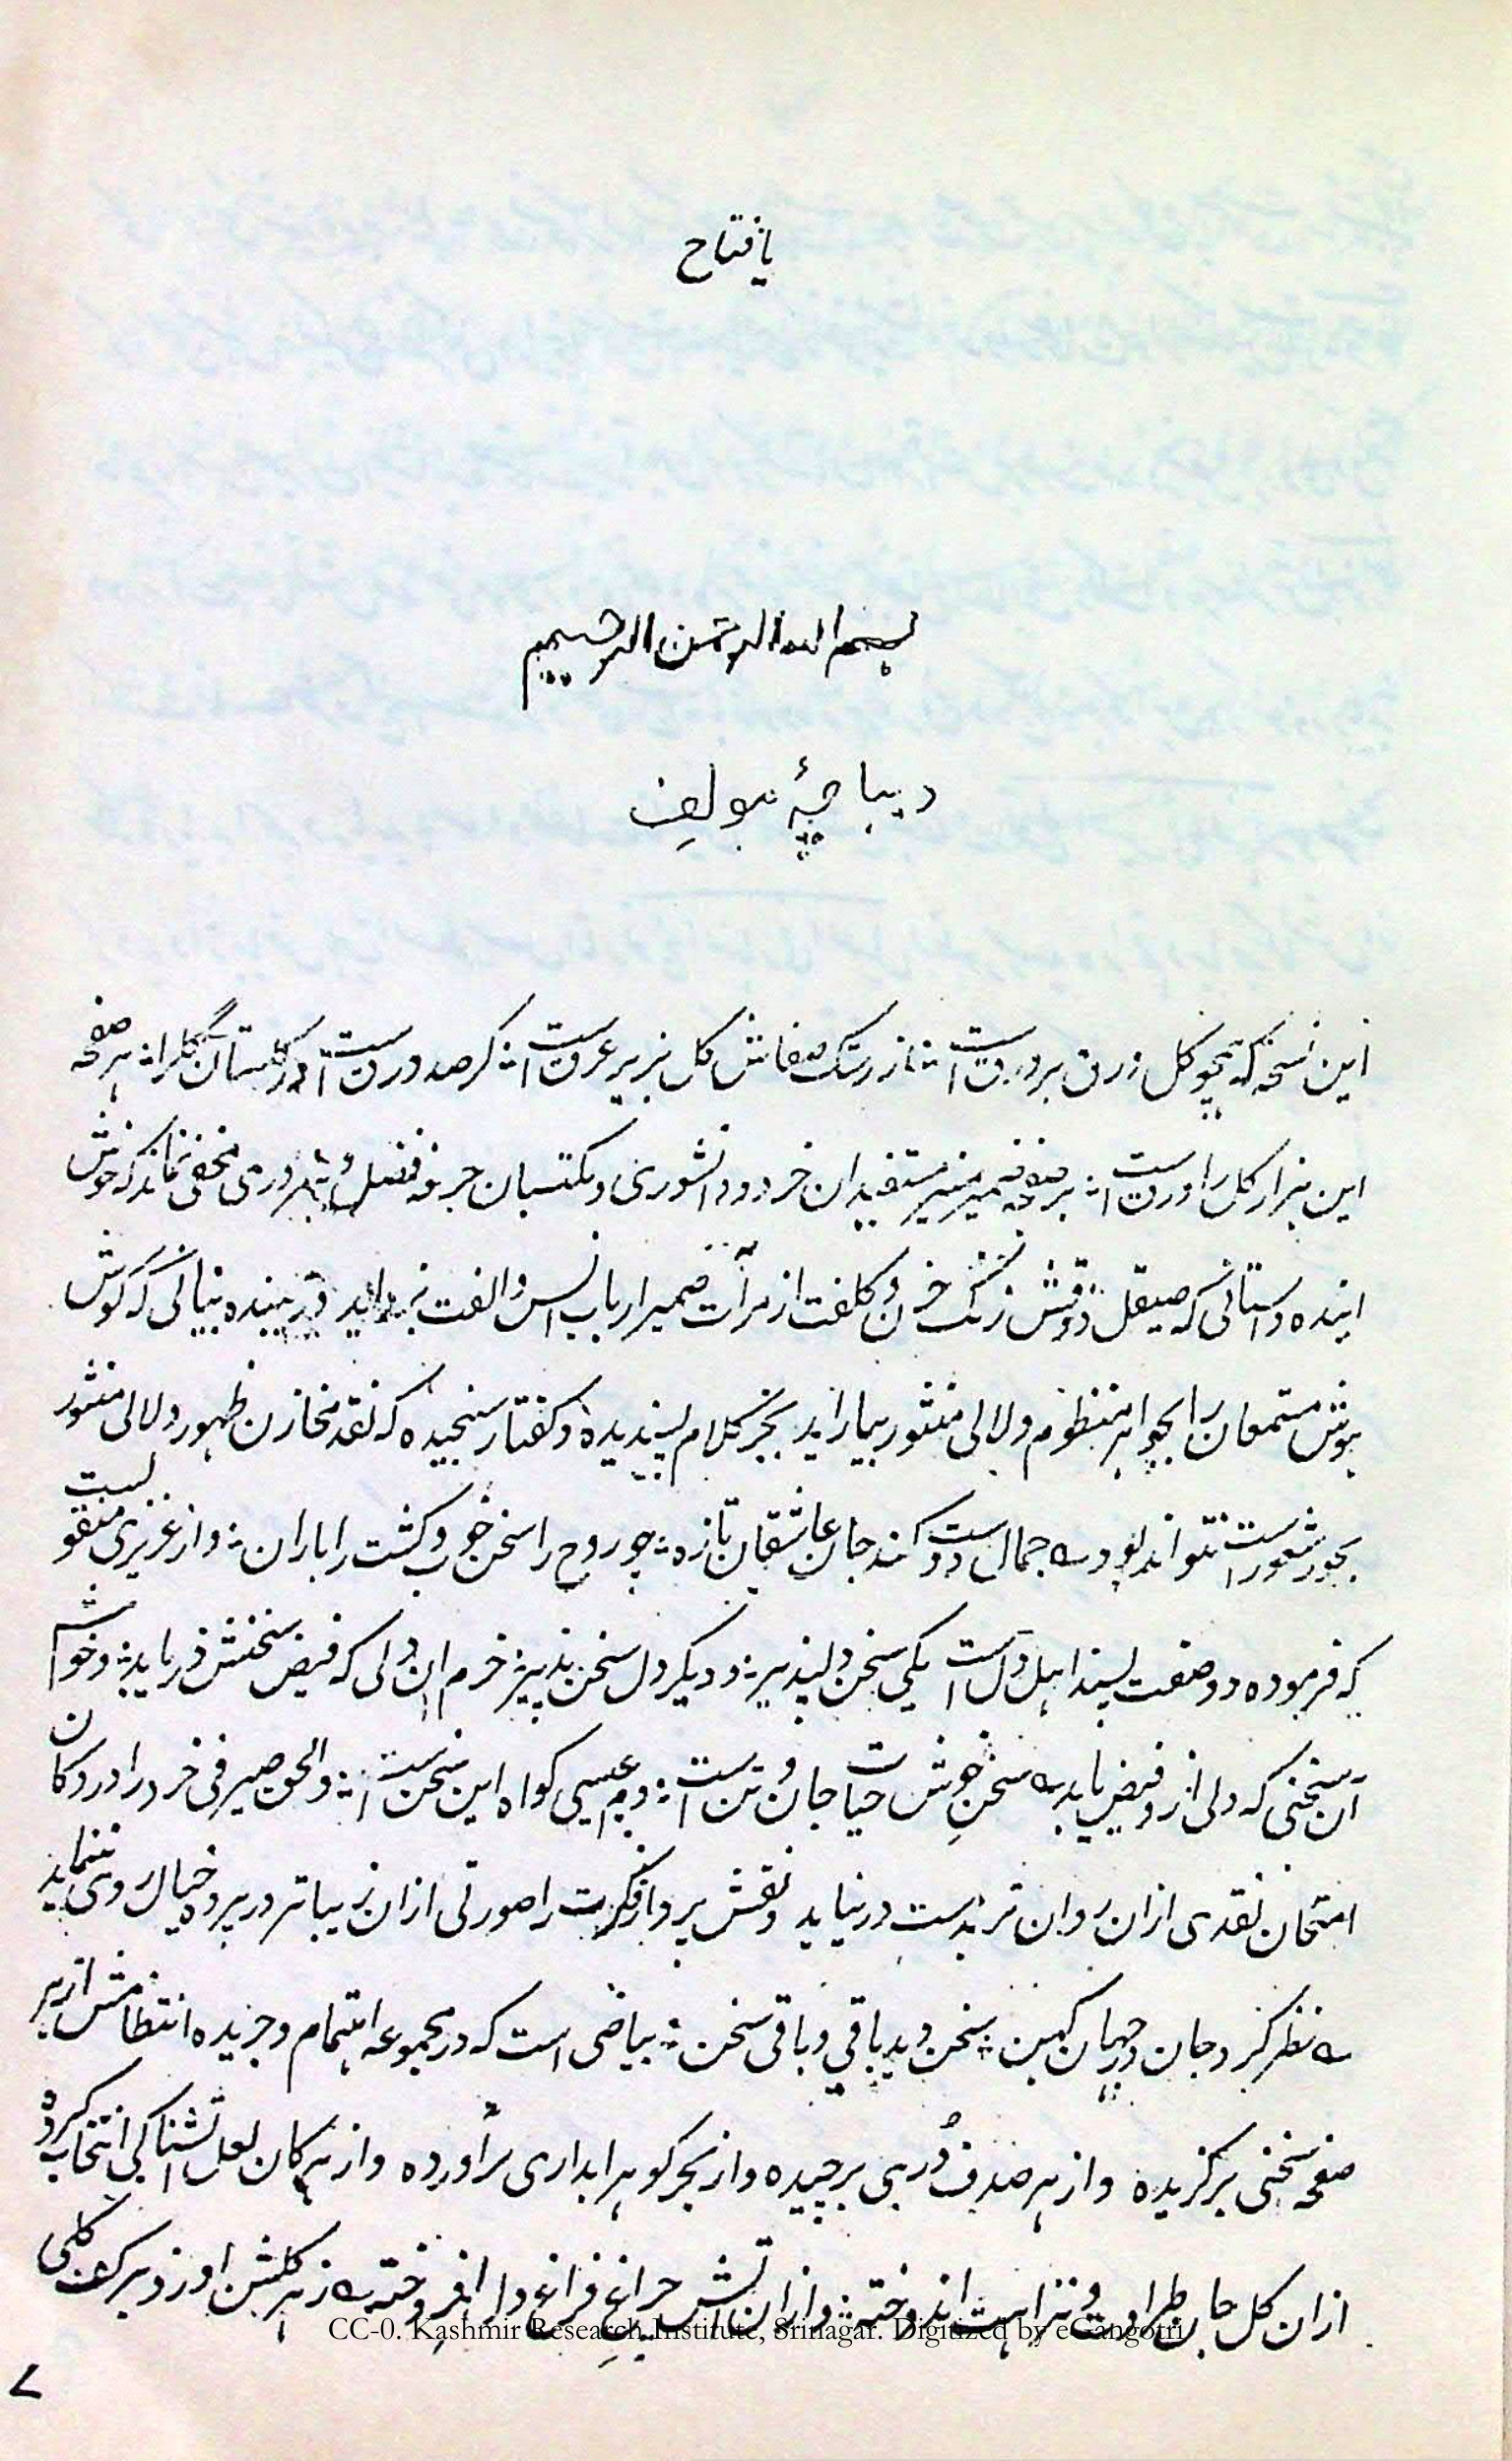 یا فتاح
بسم الله الرحمن الرحیم
دیباچۀ مولف
این نسخه که همچو گل زرق بر ورق است ؞ از رشک صفاش گل بزیر عرق است ؞ گر صد ورق است در گلستان گل را ؞ هر صفحه
این هزار گل را ورق است ؞ بر صفحه ضمیر منیر مستفیدان خرد و دانشوری و مکتسبان حرفه فضل و هنروری مخفی نماند که خوش
اینده داستانی که صیقل ذوقش زنگ حزن و کلفت از مرآت ضمیر ارباب انس و الفت بزداید و زیبنده بنیانی که گوش
هوش مستمعان را بجواهر منظوم و لالی منثور بیاراید بجز کلام پسندیده و گفتار سنجیده که نقد مخازن ظهور و لالی منثور
بحور شعور است نتواند بود ـه جمال دوست کند جان عاشقان تازه ؞ چو روح را سخن خوب و کشت را باران ؞ و از عزیزی منقولست
که فرموده دو صفت پسند اهل دل است یکی سخن دلپذیر ؞ و دیگر دل سخن پذیر ؞ خرم ان دلی که فیض سخنش دریابد ؞ و خوشا
آن سخنی که دلی از و فیض یابد ـه سخنِ خوش حیات جان و تن است ؞ دم عیسی گواه این سخن است ؞ و الحق صیرفی خرد را در دکان
امتحان نقدی ازان روان تر بدست در نیاید و نقش پرداز فکرت را صورتی ازان زیباتر در پرده خیال روی ننماید
ـه نظر کرد جان در جهان کهن ؞ سخن دید باقی و باقی سخن ؞ بیاضی است که در مجموعه اهتمام و جریده انتظامش از هر
صفحه سخنی برگزیده و از هر صدف دُرِّی برچیده و از بحر گوهر ابداری برآورده و از هر کان لعل اتشناکی انتخاب کرده
ازان گل جان طراوت و نزاهت اندوخته ؞ و ازان اتش چراغِ فراغِ دل افروخته ـه ز هر گلشن اوزد بر کف گلی
CC-0. Kashmir Research Institute, Srinagar. Digitized by eGangotri
۷